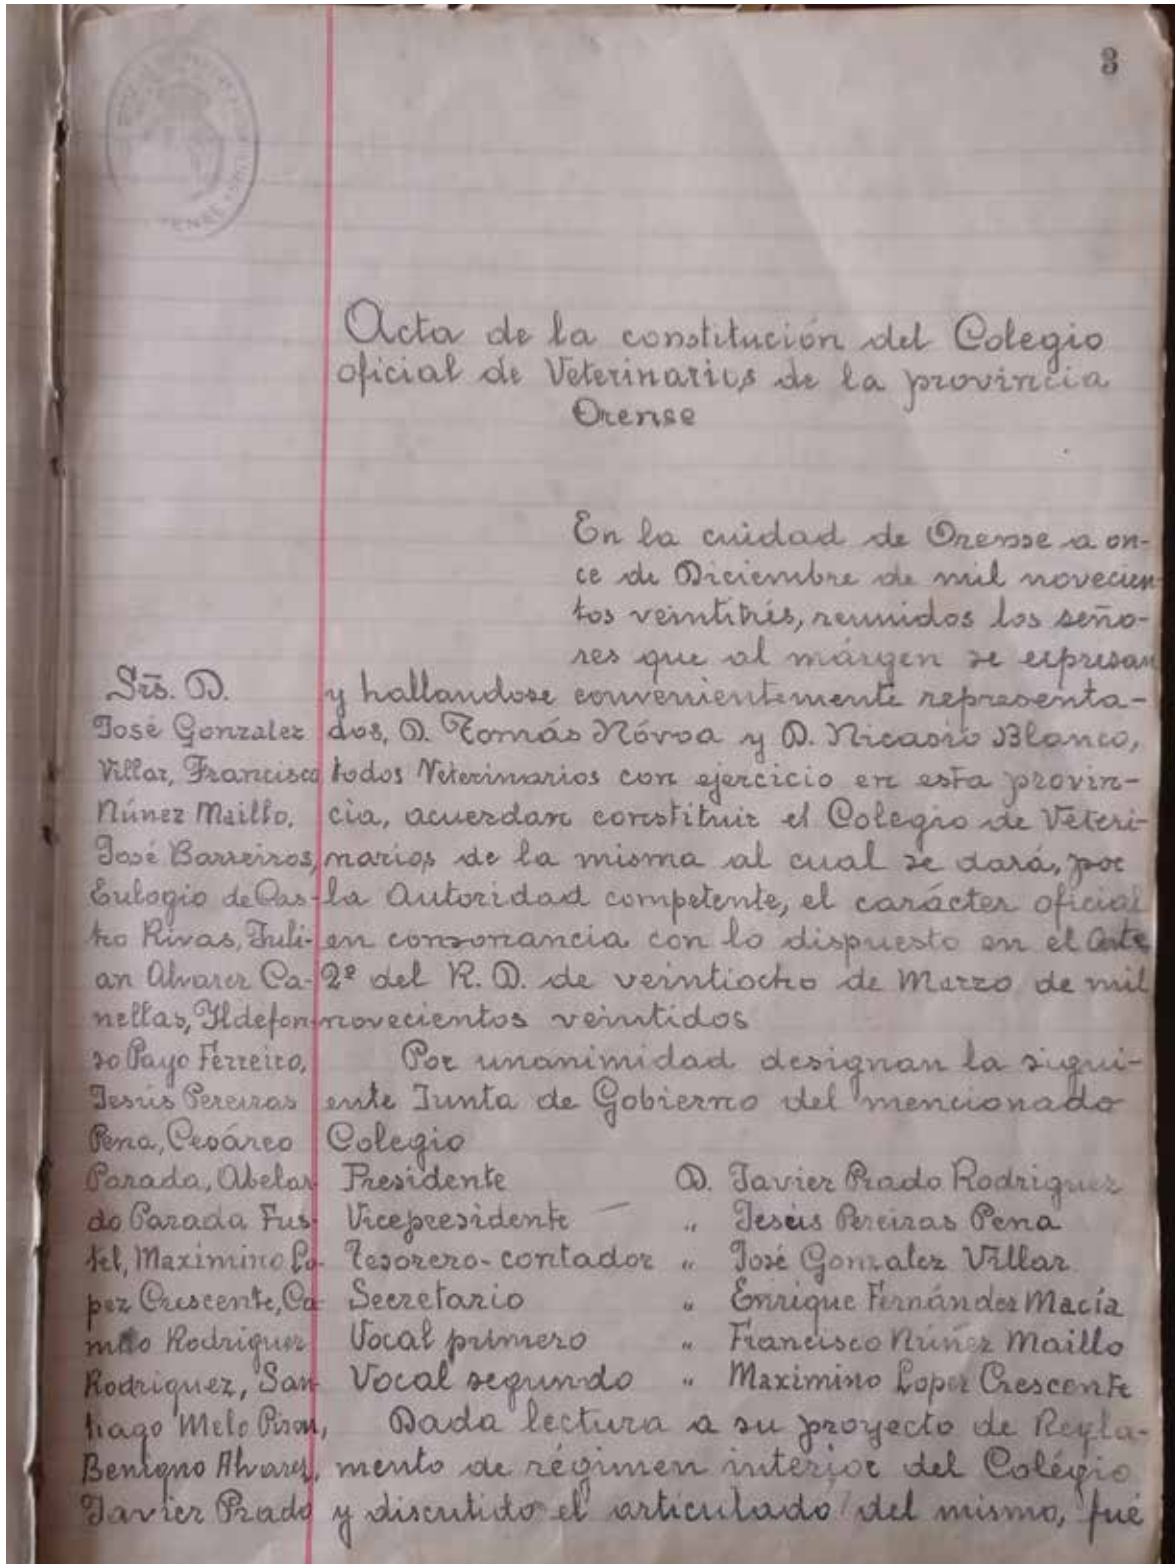 3
Acta de la constitución del Colegio
oficial de Veterinarios de la provincia
Orense
En la cuidad de Orense a on-
ce de Diciembre de mil novecien
tos veintitrés, reunidos los seño-
res que al márgen se expresan
y hallandose convenientemente representa-
dos, D. Tomás Nóvoa y D. Nicasio Blanco,
todos Veterinarios con ejercicio en esta provin-
cia, acuerdan constituir el Colegio de Veteri-
narios de la misma al cual se dará, por
la Autoridad competente, el carácter oficial
en consonancia con lo dispuesto en el Arte
2º del R. D. de veintiocho de Marzo de mil
novecientos veintidos
Por unanimidad designan la sigui-
ente Junta de Gobierno del mencionado
Colegio
Presidente D. Javier Prado Rodriguez
Vicepresidente " Jesús Pereiras Pena
Tesorero-contador " José Gonzalez Villar
Secretario " Enrique Fernández Macía
Vocal primero " Francisco Núñez Maillo
Vocal segundo " Maximino Lopez Crescente
Dada lectura a su proyecto de Regla-
mento de régimen interior del Colégio
y discutido el articulado del mismo, fué
Srs. D.
José Gonzalez
Villar, Francisco
Núnez Maillo,
José Barreiros,
Eulogio de Cas-
tro Rivas, Juli-
an Alvarez Ca-
nellas, Ildefon-
so Payo Ferreiro,
Jesús Pereiras
Pena, Cesáreo
Parada, Abelar-
do Parada Fus-
tel, Maximino Lo-
pez Crescente, Ca-
milo Rodriguez
Rodriguez, San-
tiago Melo
Benigno Alvarez,
Javier Prado